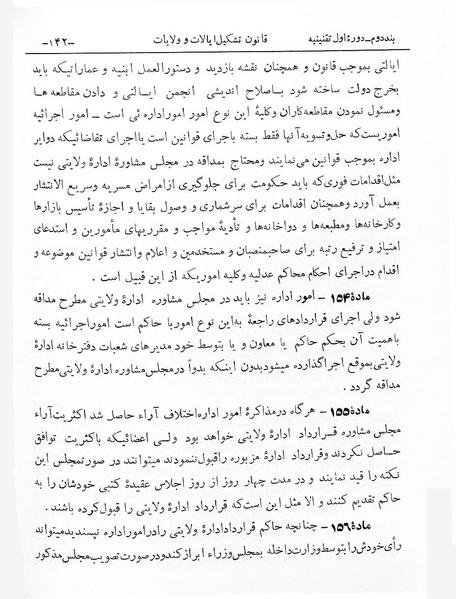 بند دوم ـ دورهٔ اول تقنینیه قانون تشکیل ایالات و ولایات ـ۱۴۲ـ
ایالتی بموجب قانون و همچنان نقشه بازدید و دستورالعمل ابنیه و عماراتیکه باید
بخرج دولت ساخته شود باصلاح اندیشی انجمن ایالتی و دادن مقاطعه ها
ومسئول نمودن مقاطعه کاران وکلیهٔ این نوع امور امور اداره ئی است ـ امور اجرائیه
اموریست که حل وتسویه آنها فقط بسته باجرای قوانین است یا اجرای تقاضائیکه دوایر
اداره بموجب قوانین می نمایند ومحتاج بمداقه در مجلس مشاورهٔ ادارهٔ ولایتی نیست
مثل اقدامات فوری که باید حکومت برای جلوگیری از امراض مسریه وسریع الانتشار
بعمل آورد وهمچنان اقدامات برای سرشماری و وصول بقایا و اجازهٔ تأسیس بازارها
وکارخانه ها ومطبعه ها و دواخانه ها و تأدیهٔ مواجب و مقرریهای مأمورین و استدعای
امتیاز و ترفیع رتبه برای صاحبمنصبان و مستخدمین و اعلام وانتشار قوانین موضوعه و
اقدام در اجرای احکام محاکم عدلیه وکلیه اموریکه از این قبیل است .
مادهٔ ۱۵۴ ـ امور اداره نیز باید در مجلس مشاوره ادارهٔ ولایتی مطرح مداقه
شود ولی اجرای قراردادهای راجعهٔ به این نوع امور با حاکم است امور اجرائیه بسته
باهمیت آن بحکم حاکم یا معاون و یا بتوسط خود مدیرهای شعبات دفترخانه ادارهٔ
ولایتی بموقع اجرا گذارده میشود بدون اینکه بدواً در مجلس مشاوره ادارهٔ ولایتی مطرح
مداقه گردد .
مادهٔ ۱۵۵ ـ هرگاه در مذاکرهٔ امور اداره اختلاف آراء حاصل شد اکثریت آراء
مجلس مشاوره قرارداد ادارهٔ ولایتی خواهد بود ولی اعضائیکه باکثریت توافق
حاصل نکردند وقرارداد ادارهٔ مزبوره را قبول ننمودند میتوانند در صورتمجلس این
نکته را قید نمایند و در مدت چهار روز از روز اجلاس عقیدهٔ کتبی خودشان را به
حاکم تقدیم کنند و الا مثل این است که قرارداد ادارهٔ ولایتی را قبول کرده باشند .
مادهٔ ۱۵۶ ـ چنانچه حاکم قرارداد ادارهٔ ولایتی را در امور اداره نپسندید میتواند
رأی خودش را بتوسط وزارت داخله بمجلس وزراء ابراز کند و در صورت تصویب مجلس مذکور